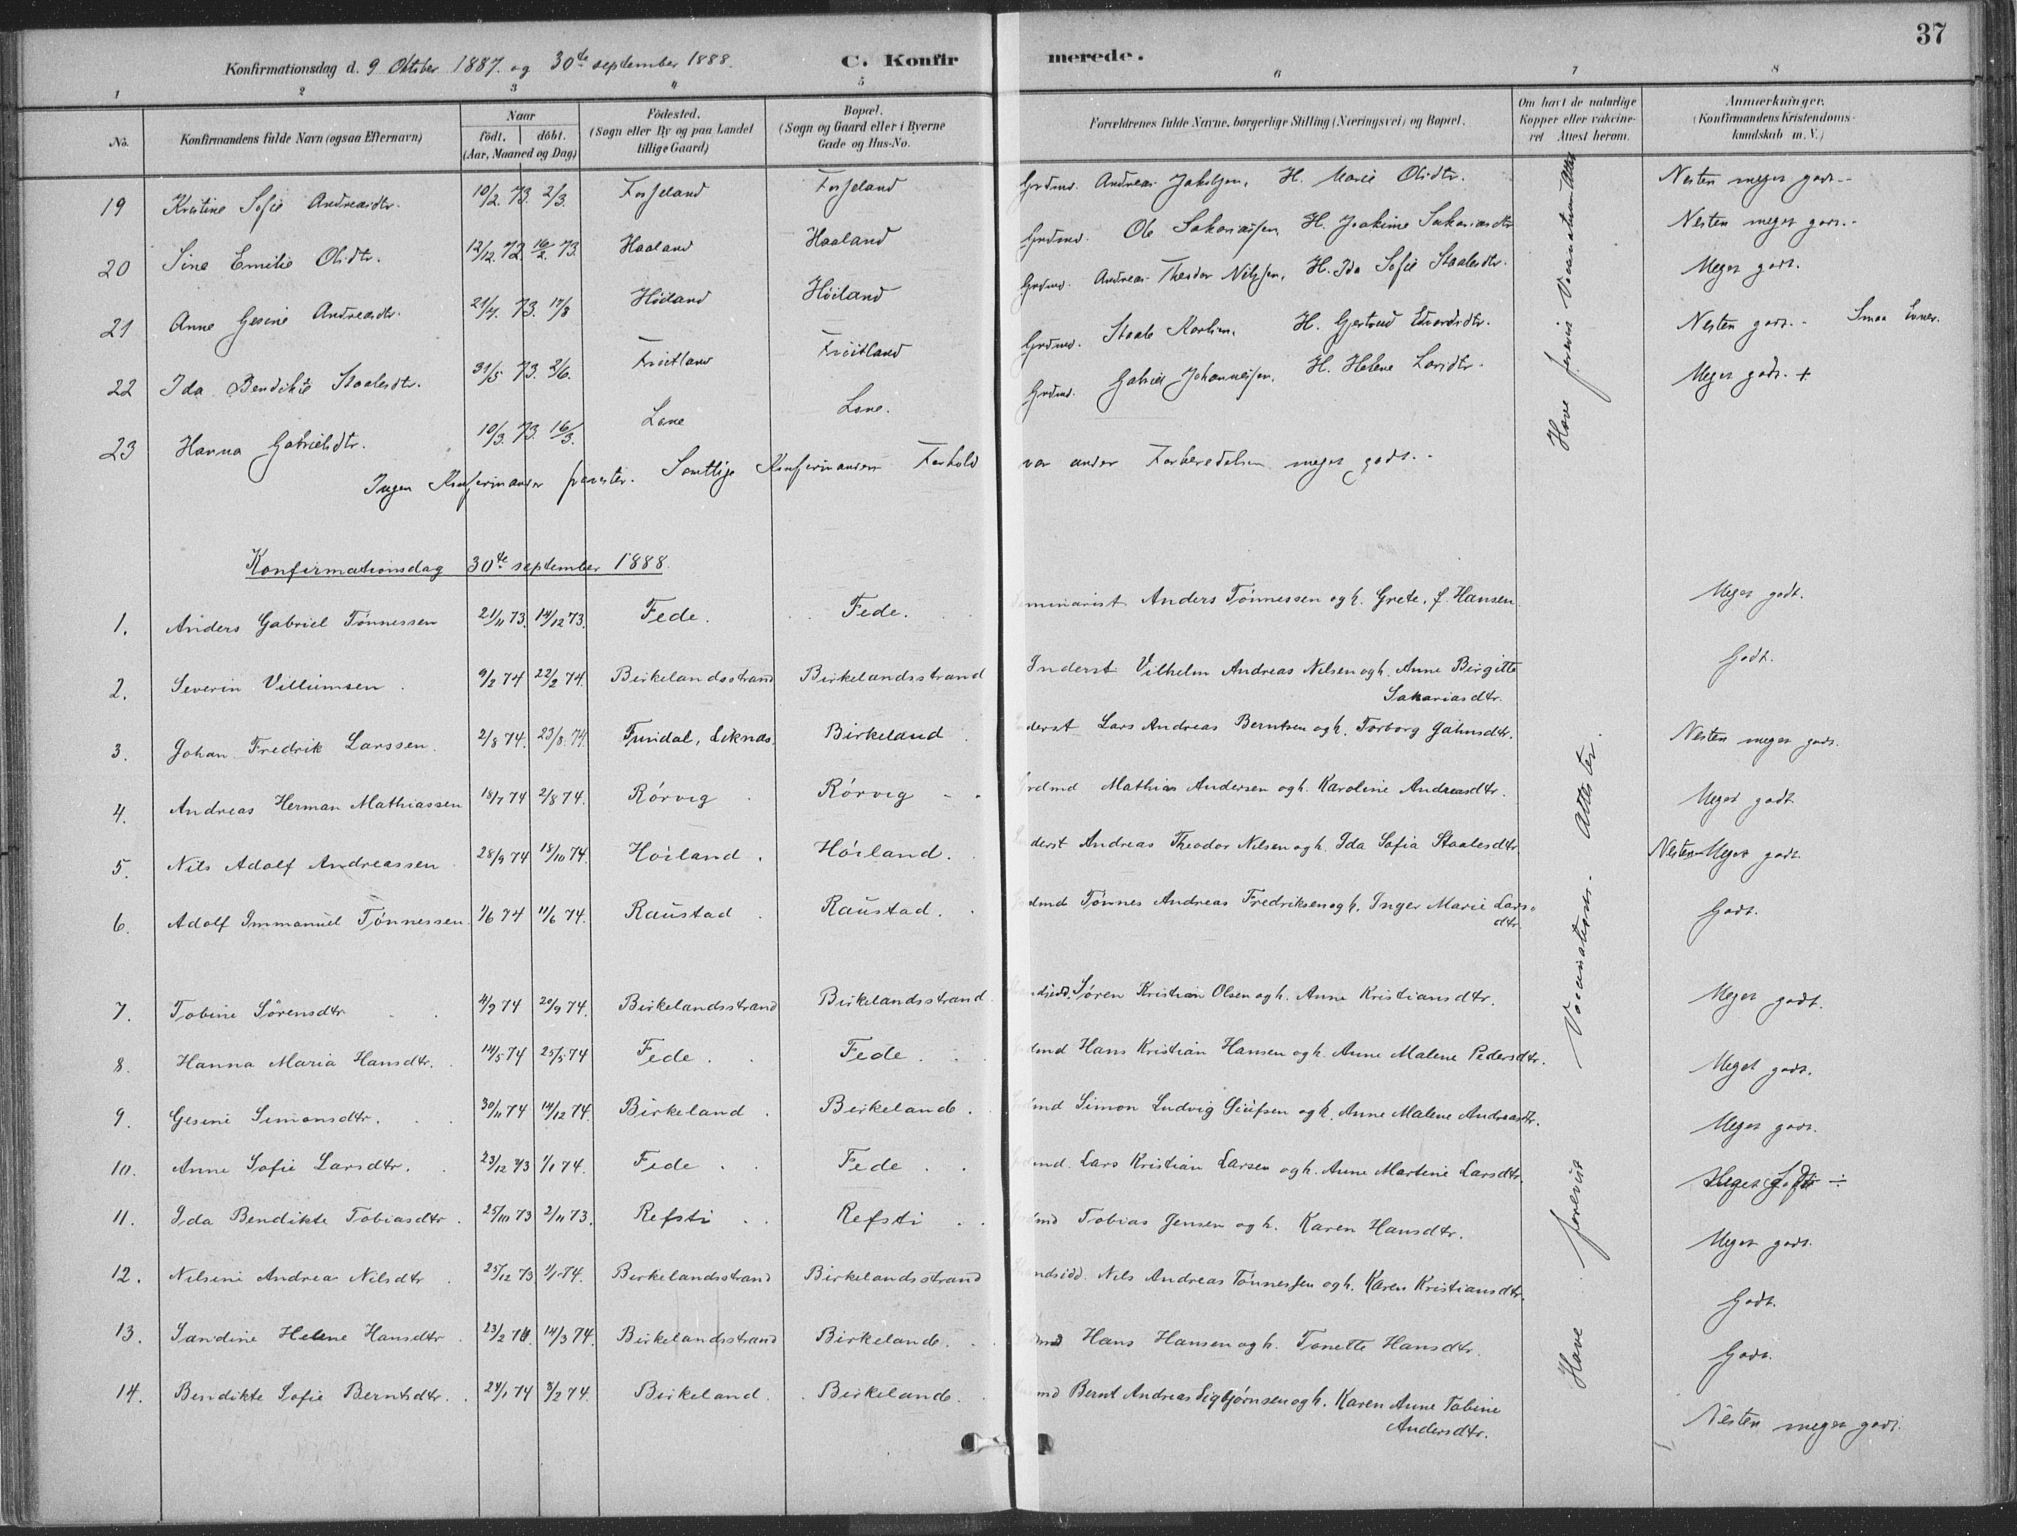 37
Konfirmationsdag d. 9 Oktober 1887. og 30te september 1888. C. Konfirmerede.
1 2 3 4 5 6 7 8
No. Konfirmandens fulde Navn (ogsaa Efternavn) Naar födt. döbt. (Aar, Maaned og Dag) Födested. (Sogn eller By og paa Landet tillige Gaard) Bopæl. (Sogn og Gaard eller i Byerne Gade og Hus-No. Forældrenes fulde Navne, borgerlige Stilling (Næringsvei) og Bopæl. Om havt de naturlige Kopper eller vakcineret. Attest herom. Anmærkninger. (Konfirmandens Kristendomskundskab m. V.)
19 Kristine Sofie Andreasdtr. 10/2. 73. 2/3. Grdmd. Andreas Jakobsen, H. Marie Olsdtr. Nesten meget godt.
20 Sine Emilie Olsdtr. 12/12. 72. 16/2. 73. Haaland Haaland Grdmd. Ole Sakariassen, H. Joakime Sakariasdtr Nesten meget godt.
21 Anne Gesine Andreasdtr. 21/7. 73. 17/8 Höiland Höiland Grdmd. Andreas Theodor Nilssen, H. Ida Sofie Staalesdtr. Meget godt.
22 Ida Bendikte Staalesdtr. 31/5 73. 2/6. Fröitland Fröitland Grdmd. Staale Karlsen, H. Gjertrud Edvardsdtr. Nesten godt. Smaa Evner.
23 Hanna Gabrielsdtr. 10/3. 73. 16/3. Lone Lone. Grdmd. Gabriel Johannessen, H. Helene Larsdtr. Meget godt. +
Have forevist Vaccinations Atter
Ingen Konfirmander Samtlige Konfirmanders Forhold var under Forberedelsen meget godt.
Konfirmationsdag 30te september 1888.
1. Anders Gabriel Tönnessen 21/11 73. 14/12 73. Fede. Fede. Seminarist Anders Tönnessen og h. Grete, f. Hansen. Meget godt.
2. Severin Villumsen 9/2 74 22/2 74. Birkelandsstrand Birkelandsstrand Inderst Vilhelm Andreas Nilsen og h. Anne Birgitte Sakariasdtr. Godt.
3. Johan Fredrik Larssen. 2/8 74. 23/8 74. Fjindal, Liknæs. Birkeland Inderst Lars Andreas Berntsen og h. Torborg Gahnsdtr. Nesten meget godt.
4. Andreas Herman Mathiassen 18/7 74 2/8 74. Rörvig Rörvig Grdmd Mathias Andersen og h. Karoline Andreasdtr. Meget godt
5. Nils Adolf Andreassen 28/9 74 18/10 74. Höiland. Höiland. Inderst Andreas Theodor Nilsen og h. Ida Sofia Staalesdtr. Nesten Meget godt.
6. Adolf Immanuel Tönnessen. 1/6 74 11/6 74. Raustad Raustad. Grdmd Tönnes Andreas Fredriksen og h. Inger Marie Larsdtr. Godt.
7. Tobine Sörensdtr 4/9 74 20/9 74. Birkelandsstrand Birkelandsstrand Strandsidd. Sören Kristian Olsen og h. Anne Kristiansdtr. Meget godt.
8. Hanna Maria Hansdtr. 14/5 74 25/5 74 Fede. Fede. Grdmd Hans Kristian Hansen og h. Anne Malene Pedersdtr. Meget godt.
9. Gesine Simonsdtr. 30/11 74 14/12 74. Birkeland Birkeland. Grdmd Simon Ludvig Siufsen og h. Anne Malene Andreasdtr. Meget godt.
10. Anne Sofie Larsdtr. 23/12 73 1/1 74. Fede Fede Grdmd. Lars Kristian Larsen og h. Anne Martine Larsdtr. Meget godt ÷
11. Ida Bendikte Tobiasdtr. 25/10 73 2/11 73. Refsti Refsti Grdmd Tobias Jensen og h. Karen Hansdtr. Meget godt.
12. Nilsine Andrea Nilsdtr 25/12 73 1/1 74. Birkelandsstrand Birkelandsstrand Strandsidd. Nils Andreas Tönnessen og h. Karen Kristiansdtr. Godt.
13. Sandine Helene Hansdtr 23/2 74. 14/3 74. Birkelandsstrand Birkeland. Grdmd Hans Hansen og h. Tonette Hansdtr. Godt.
14. Bendikte Sofie Berntsdtr. 24/1 74 8/2 74. Birkeland. Birkeland. Grdmd Bernt Andreas Sigbjörnsen og h. Karen Anne Tobine Andersdtr. Nesten meget godt.
Have forevist Vaccinations Attester.